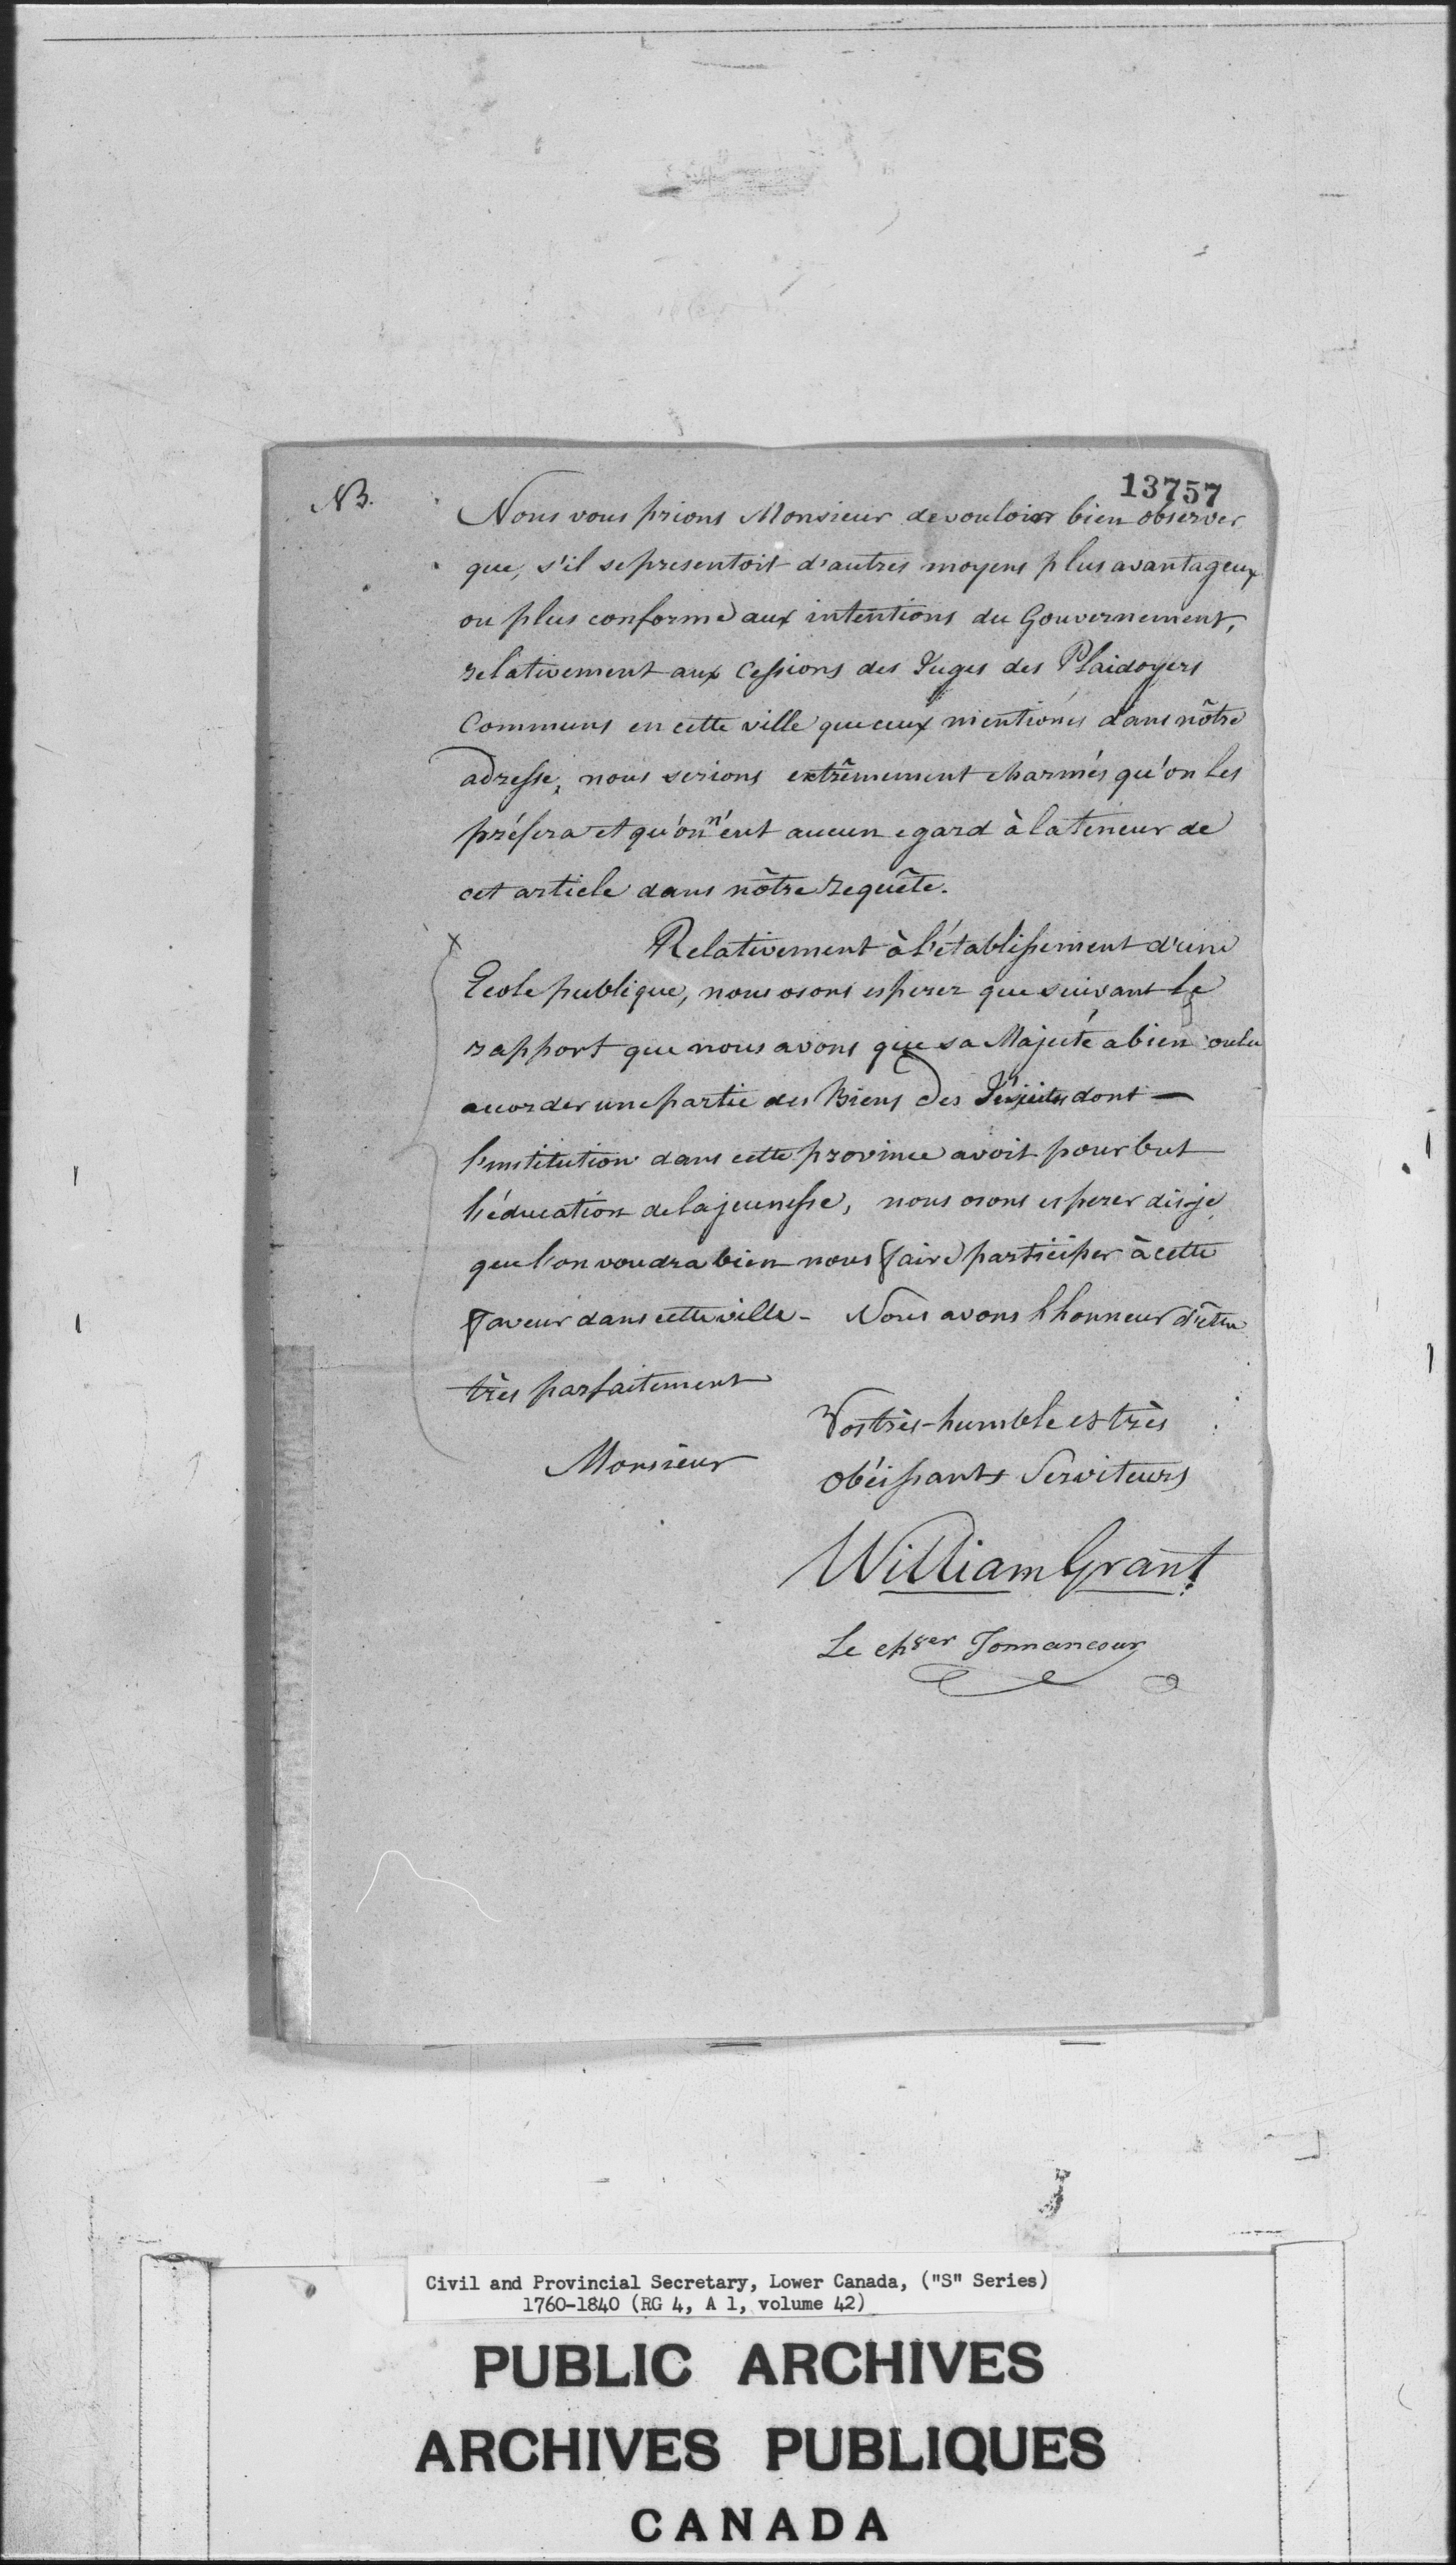 13757
NB. Nous vous prions Monsieur de vouloir bien observer
que, s'il se presentoit d'autres moyens plus avantageux
ou plus conforme aux intentions du Gouvernement,
relativement aux Cessions des Juges des Plaidoyers
Communs en cette ville que ceux mentionés dans nôtre
adresse, nous serions extrêmement charmés qu'on les
préfera et qu'on n'eut aucun egard à la teneur de
cet article dans nôtre requête.
x Relativement à l'établissement d'une
Ecole publique, nous osons esperer que suivant le
rapport que nous avons que sa Majesté a bien voulu
accorder une partie des Biens des Jésuites dont —
l'institution dans cette province avoit pour but
l'éducation de la jeunesse, nous osons esperer dis-je
que l'on voudra bien nous faire participer à cette
faveur dans cette ville - Nous avons l'honneur d'être
très parfaitement
Monsieur
Vos très-humble et très
obéissants Serviteurs
William Grant
Le chser Tonnancour
Civil and Provincial Secretary, Lower Canada, ("S" Series)
1760-1840 (RG 4, A 1, volume 42)
PUBLIC ARCHIVES
ARCHIVES PUBLIQUES
CANADA